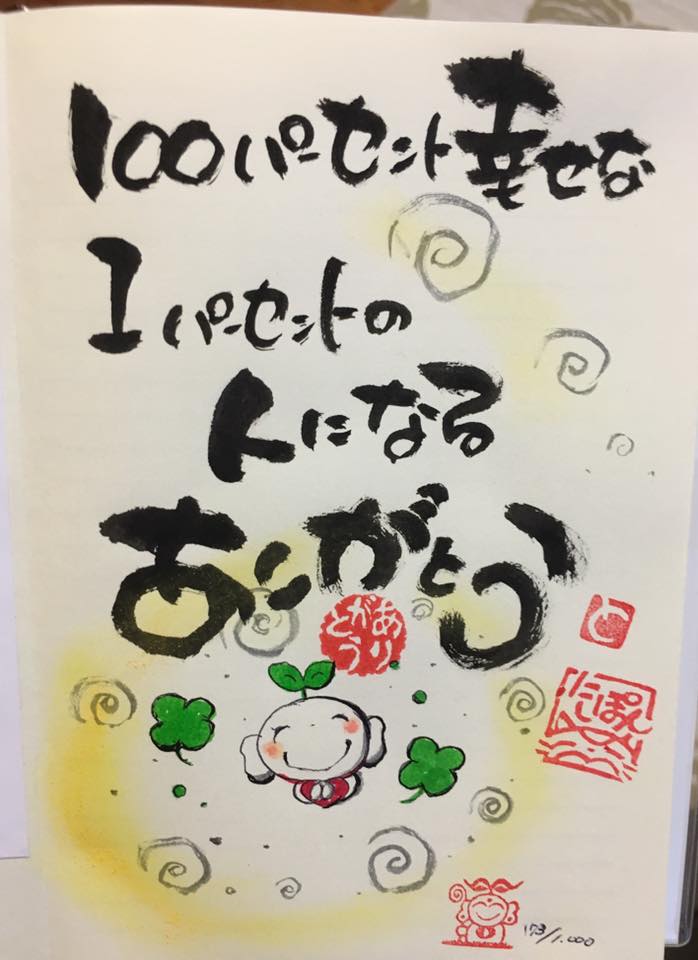 100パーセント幸せな
1パーセントの
人になる
ありがとう
ありがとう
と
にっぽん
173/1.000